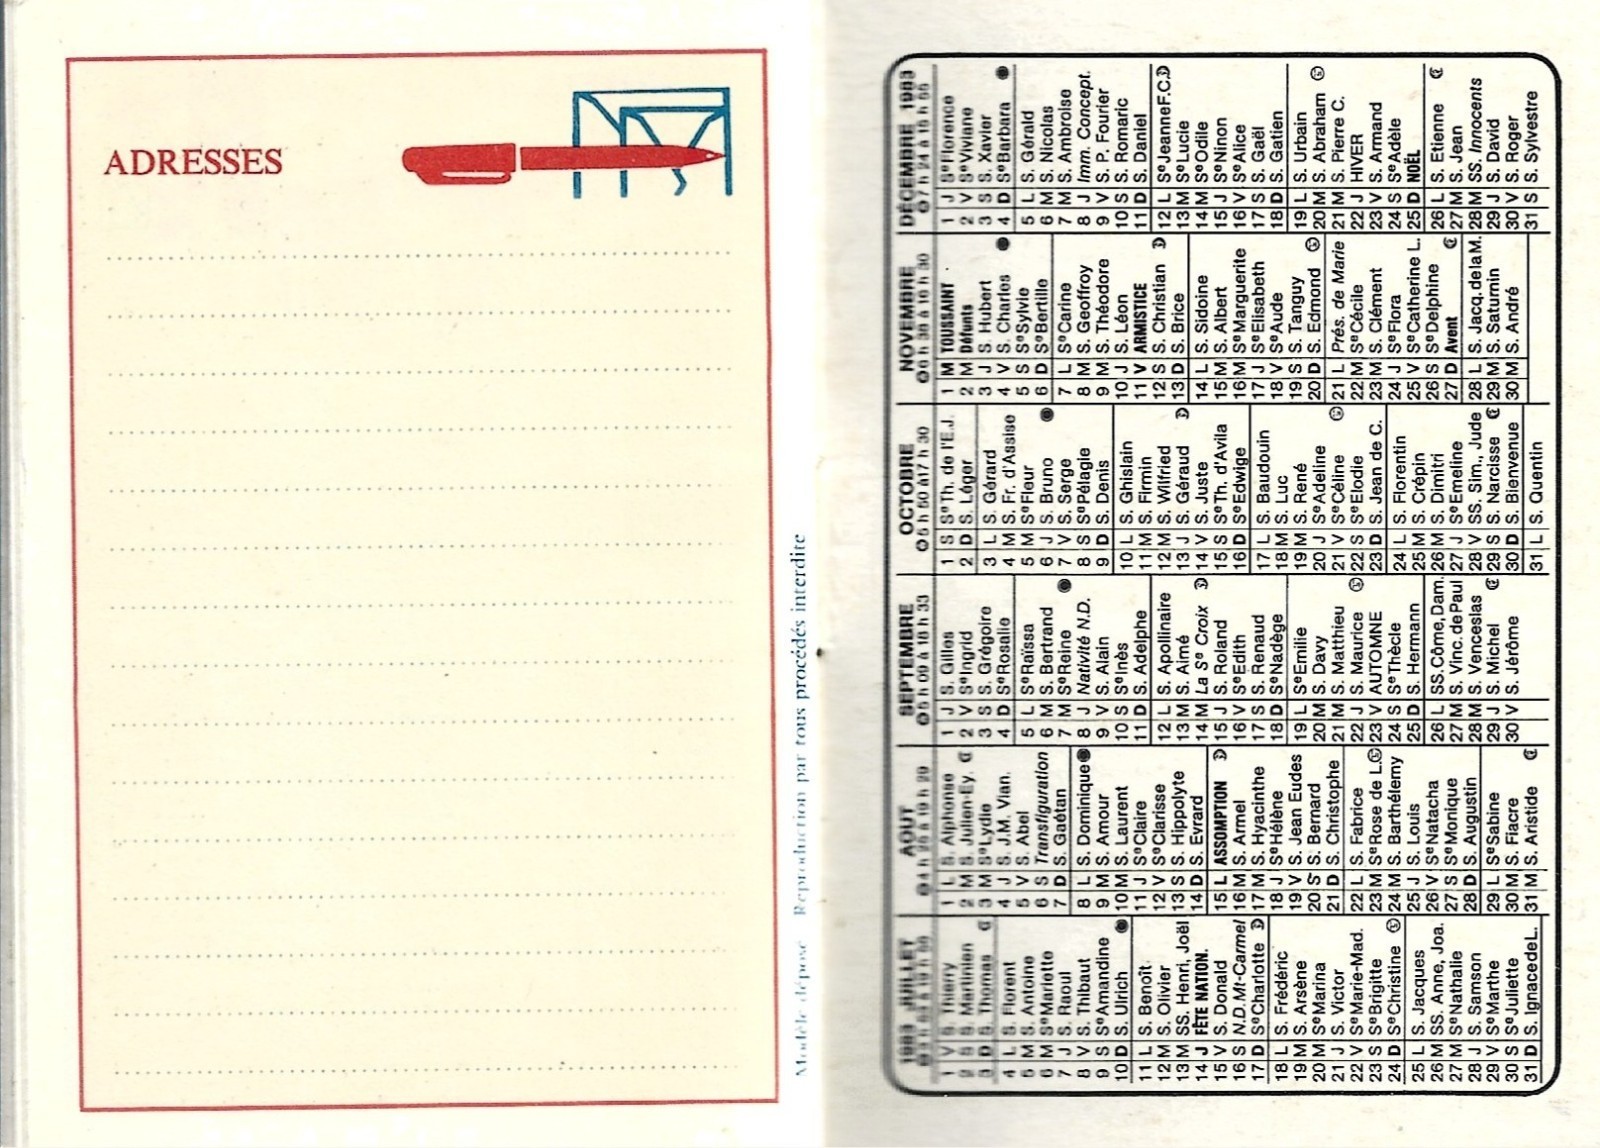 ADRESSES
Modèle déposé Reproduction par tous procédés interdite
1983 JUILLET
1 V S. Thierry
2 S S. Martinien
3 D S. Thomas
4 L S. Florent
5 M S. Antoine
6 M Sᵉ Mariette
7 J S. Raoul
8 V S. Thibaut
9 S Sᵉ Amandine
10 D S. Ulrich
11 L S. Benoît
12 M S. Olivier
13 M SS. Henri, Joël
14 J FÊTE NATION.
15 V S. Donald
16 S N.D. Mt-Carmel
17 D Sᵉ Charlotte
18 L S. Frédéric
19 M S. Arsène
20 M Sᵉ Marina
21 J S. Victor
22 V Sᵉ Marie-Mad.
23 S Sᵉ Brigitte
24 D Sᵉ Christine
25 L S. Jacques
26 M SS. Anne, Joa.
27 M Sᵉ Nathalie
28 J S. Samson
29 V Sᵉ Marthe
30 S Sᵉ Juliette
31 D S. Ignace de L.
AOUT
1 L S. Alphonse
2 M S. Julien-Ey.
3 M Sᵉ Lydie
4 J S. J.M. Vian.
5 V S. Abel
6 S Transfiguration
7 D S. Gaétan
8 L S. Dominique
9 M S. Amour
10 M S. Laurent
11 J Sᵉ Claire
12 V Sᵉ Clarisse
13 S S. Hippolyte
14 D S. Evrard
15 L ASSOMPTION
16 M S. Armel
17 M S. Hyacinthe
18 J Sᵉ Hélène
19 V S. Jean Eudes
20 S S. Bernard
21 D S. Christophe
22 L S. Fabrice
23 M Sᵉ Rose de L.
24 M S. Barthélemy
25 J S. Louis
26 V Sᵉ Natacha
27 S Sᵉ Monique
28 D S. Augustin
29 L Sᵉ Sabine
30 M S. Fiacre
31 M S. Aristide
SEPTEMBRE
5 h 09 à 18 h 33
1 J S. Gilles
2 V Sᵉ Ingrid
3 S S. Grégoire
4 D Sᵉ Rosalie
5 L Sᵉ Raïssa
6 M S. Bertrand
7 M Sᵉ Reine
8 J Nativité N.D.
9 V S. Alain
10 S Sᵉ Inès
11 D S. Adelphe
12 L S. Apollinaire
13 M S. Aimé
14 M La Sᵉ Croix
15 J S. Roland
16 V Sᵉ Edith
17 S S. Renaud
18 D Sᵉ Nadège
19 L Sᵉ Emilie
20 M S. Davy
21 M S. Matthieu
22 J S. Maurice
23 V AUTOMNE
24 S Sᵉ Thècle
25 D S. Hermann
26 L SS. Côme, Dam.
27 M S. Vinc. de Paul
28 M S. Venceslas
29 J S. Michel
30 V S. Jérôme
OCTOBRE
5 h 50 à 17 h 30
1 S Sᵉ Th. de l'E.J.
2 D S. Léger
3 L S. Gérard
4 M S. Fr. d'Assise
5 M Sᵉ Fleur
6 J S. Bruno
7 V S. Serge
8 S Sᵉ Pélagie
9 D S. Denis
10 L S. Ghislain
11 M S. Firmin
12 M S. Wilfried
13 J S. Géraud
14 V S. Juste
15 S Sᵉ Th. d'Avila
16 D Sᵉ Edwige
17 L S. Baudouin
18 M S. Luc
19 M S. René
20 J Sᵉ Adeline
21 V Sᵉ Céline
22 S Sᵉ Elodie
23 D S. Jean de C.
24 L S. Florentin
25 M S. Crépin
26 M S. Dimitri
27 J Sᵉ Emeline
28 V SS. Sim., Jude
29 S S. Narcisse
30 D S. Bienvenue
31 L S. Quentin
NOVEMBRE
6 h 38 à 16 h 30
1 M TOUSSAINT
2 M Défunts
3 J S. Hubert
4 V S. Charles
5 S Sᵉ Sylvie
6 D Sᵉ Bertille
7 L Sᵉ Carine
8 M S. Geoffroy
9 M S. Théodore
10 J S. Léon
11 V ARMISTICE
12 S S. Christian
13 D S. Brice
14 L S. Sidoine
15 M S. Albert
16 M Sᵉ Marguerite
17 J Sᵉ Elisabeth
18 V Sᵉ Aude
19 S S. Tanguy
20 D S. Edmond
21 L Prés. de Marie
22 M Sᵉ Cécile
23 M S. Clément
24 J Sᵉ Flora
25 V Sᵉ Catherine L.
26 S Sᵉ Delphine
27 D Avent
28 L S. Jacq. de la M.
29 M S. Saturnin
30 M S. André
DÉCEMBRE 1983
7 h 24 à 15 h 55
1 J Sᵉ Florence
2 V Sᵉ Viviane
3 S S. Xavier
4 D Sᵉ Barbara
5 L S. Gérald
6 M S. Nicolas
7 M S. Ambroise
8 J Imm. Concept.
9 V S. P. Fourier
10 S S. Romaric
11 D S. Daniel
12 L Sᵉ Jeanne F.C.
13 M Sᵉ Lucie
14 M Sᵉ Odile
15 J Sᵉ Ninon
16 V Sᵉ Alice
17 S S. Gaël
18 D S. Gatien
19 L S. Urbain
20 M S. Abraham
21 M S. Pierre C.
22 J HIVER
23 V S. Armand
24 S Sᵉ Adèle
25 D NOËL
26 L S. Etienne
27 M S. Jean
28 M SS. Innocents
29 J S. David
30 V S. Roger
31 S S. Sylvestre